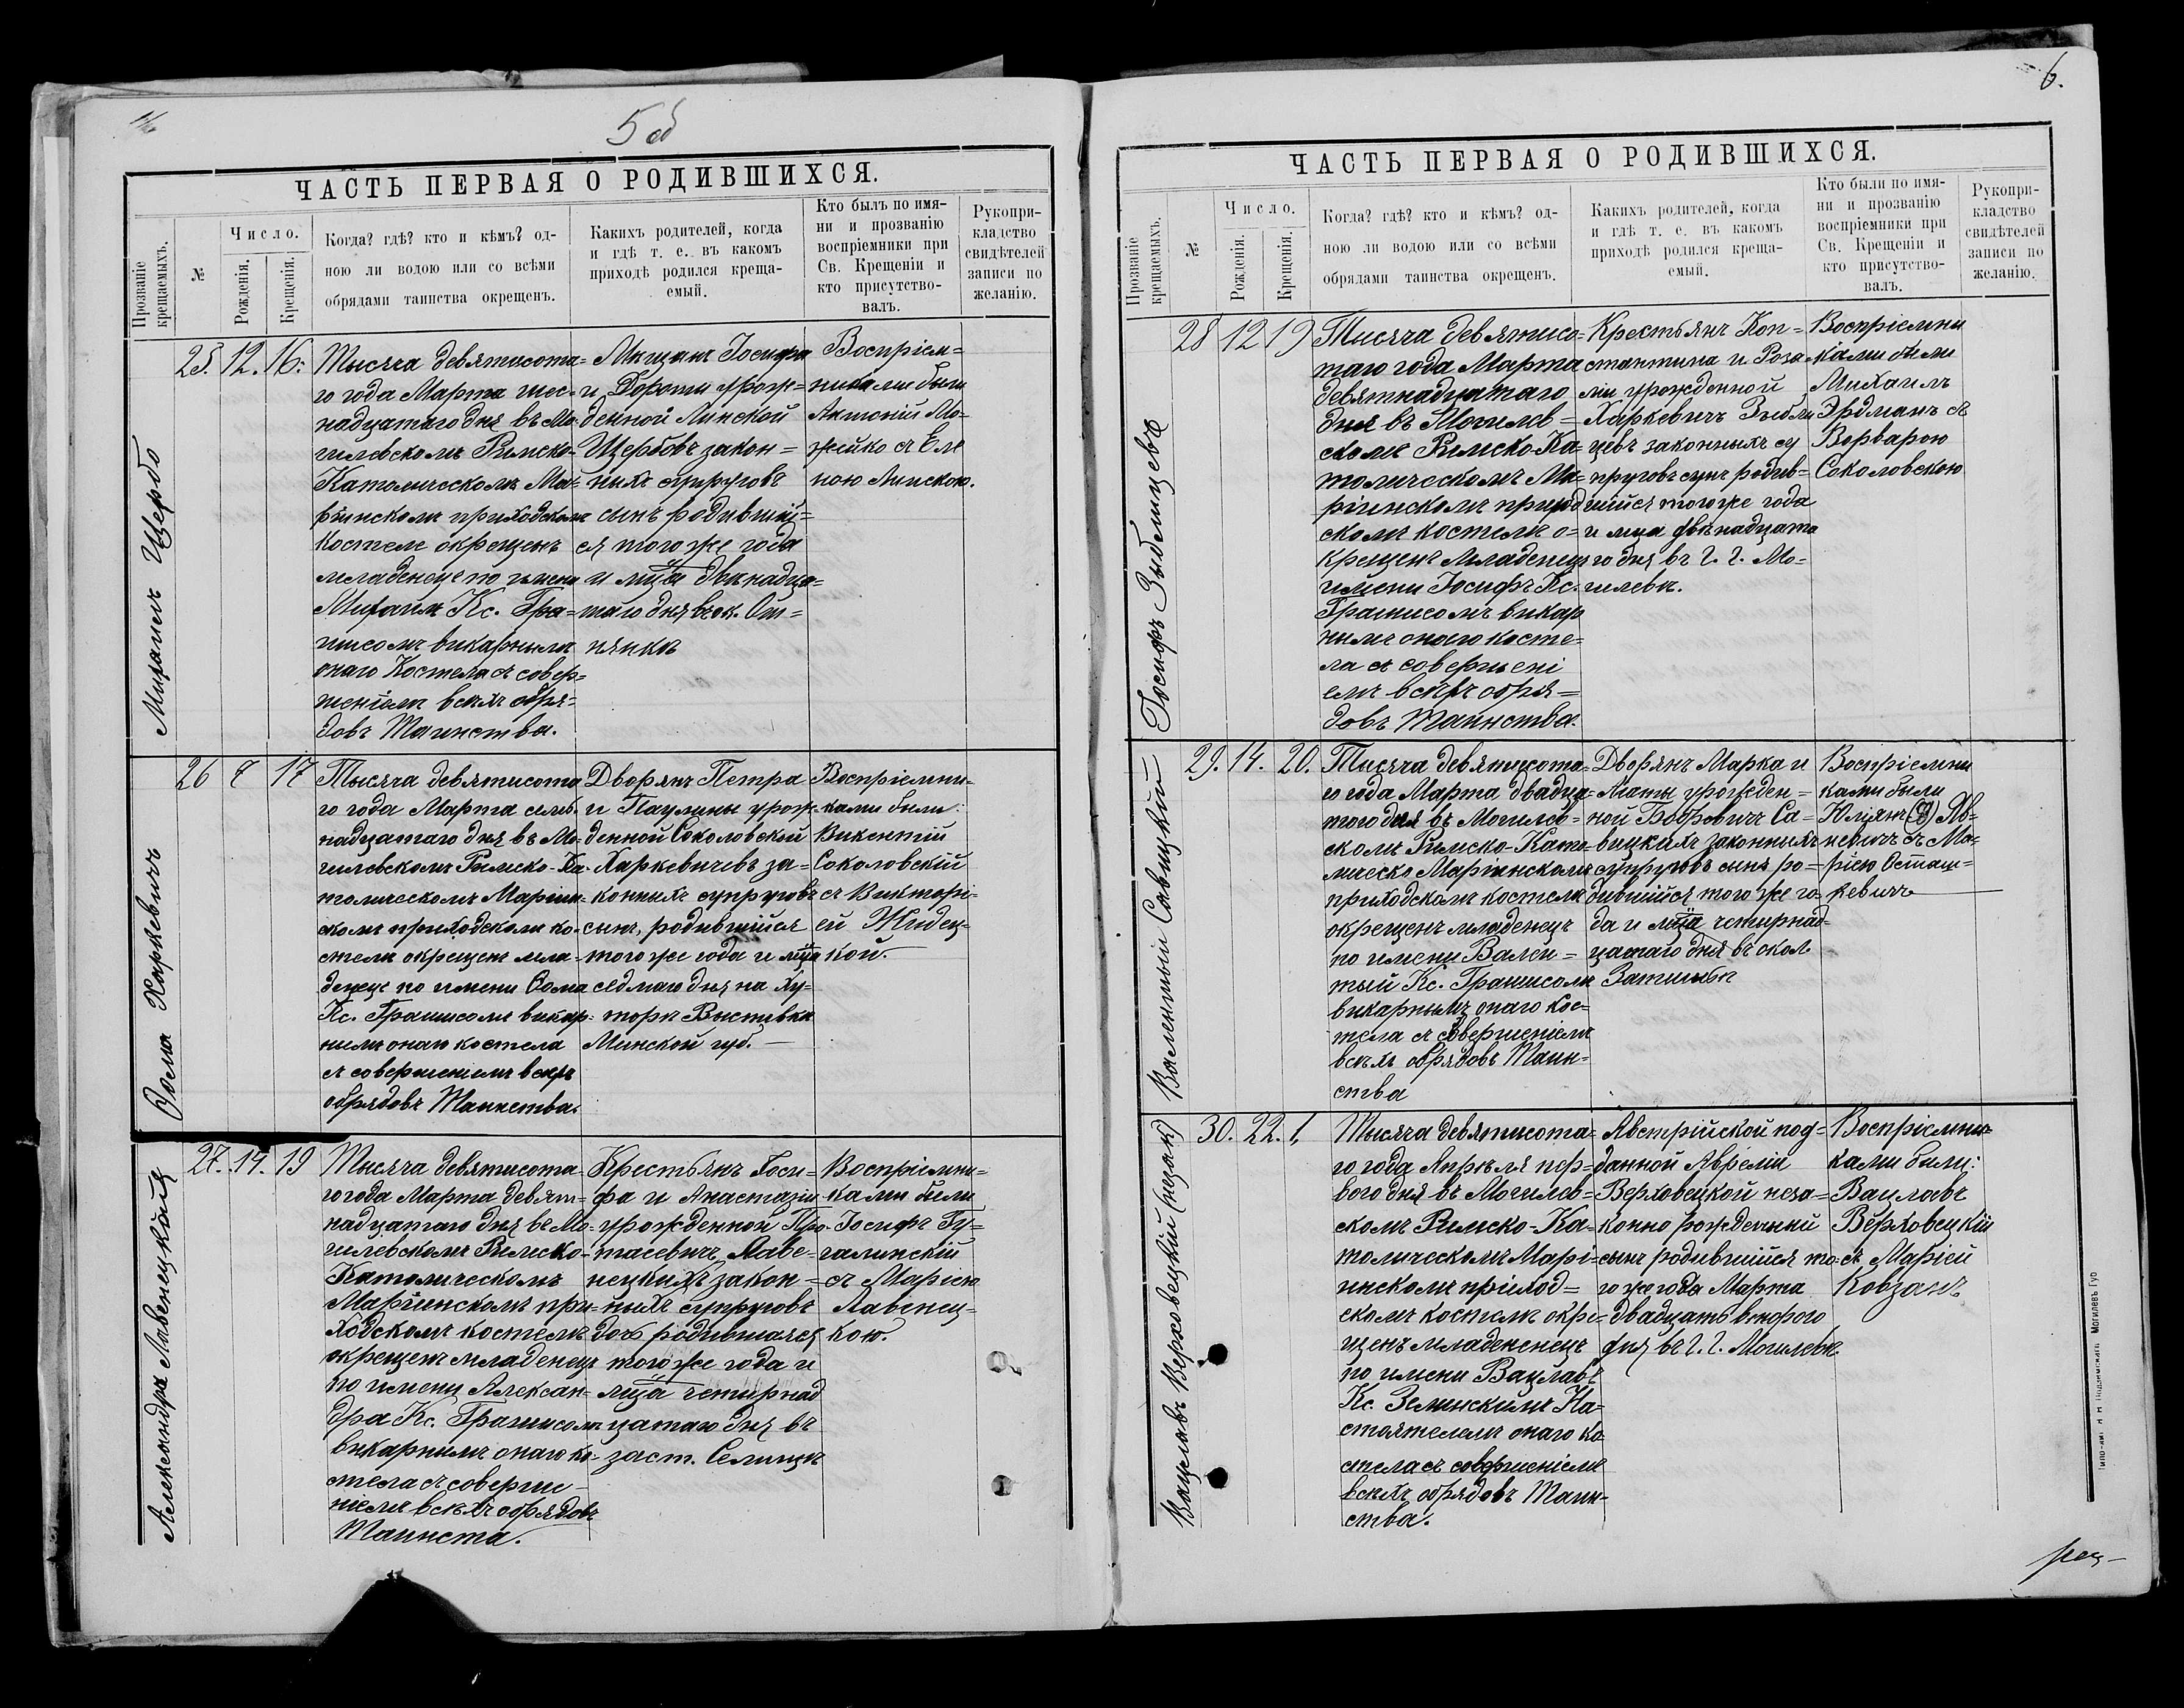 5 об
ЧАСТЬ ПЕРВАЯ О РОДИВШИХСЯ.
Прозваніе крещаемыхъ.
№
Число.
Рожденія.
Крещенія.
Когда? гдѣ? кто и кѣмъ? од-
ною ли водою или со всѣми
обрядами таинства окрещенъ.
Какихъ родителей, когда
и гдѣ т. е. въ какомъ
приходѣ родился креща-
емый.
Кто былъ по имя-
ни и прозванію
воспріемники при
Св. Крещеніи и
кто присутство-
валъ.
Рукопри-
кладство
свидѣтелей
записи по
желанію.
Михаилъ Щербо
25. 12. 16.
Тысяча девятисота-
го года Марта шес-
надцатаго дня въ Мо-
гилевскомъ Римско-
Католическомъ Ма-
ріинскомъ приходскомъ
костеле окрещенъ
младенецъ по имени
Михаилъ Кс. Гра-
нисомъ викарнымъ
онаго Костела съ совер-
шеніемъ всѣхъ обря-
довъ Таинства.
Мищанъ Іосифа
и Дороти урож-
денной Линской
Щербовъ закон-
ныхъ супруговъ
сынъ родившій-
ся того же года
и мѣца двѣнадца-
таго дня въ ок.
Воспріем-
никами были
Антоній Мо-
жейко съ Еле
ною Липскою.
Ѳома Харкевичъ
26 7 17
Тысяча девятисота
го года Марта сем-
надцатаго дня въ Мо-
гилевскомъ Римско-Ка-
толическомъ Маріин-
скомъ приходскомъ ко-
стелѣ окрещенъ мла-
денецъ по имени Ѳома
Кс. Гранисомъ викар-
нымъ онаго костела
съ совершеніемъ всѣхъ
обрядовъ Таинства.
Дворянъ Петра
и Паулины урож-
денной Соколовской
Харкевичевъ за-
конныхъ супруговъ
сынъ, родившійся
того же года и мѣца
седмаго дня на Ху-
торѣ Выставка
Минской губ.
Воспріемни-
ками были:
Викентій
Соколовскій
съ Викторі-
ей Жидец-
кой.
Александра Лавенецкая
27. 14. 19
Тысяча девятисота-
го года Марта девят-
надцатаго дня въ Мо-
гилевскомъ Римско-
Католическомъ
Маріинскомъ при-
ходскомъ костелѣ
окрещенъ младенец
по имени Алексан-
дра Кс. Гранисомъ
викарнымъ онаго ко-
стела съ соверше-
ніемъ всѣхъ обрядовъ
Таинста.
Крестьянъ Іоси-
фа и Анастазіи
урожденной Про-
тасевичъ Лаве-
нецкихъ закон-
ныхъ супруговъ
дочь родившаяся
того же года и
мѣца четырнад
цатаго дня въ
заст. Селищѣ
Воспріемни-
ками были
Іосифъ Гу-
галинскій
съ Маріею
Лавенец-
кою.
6.
ЧАСТЬ ПЕРВАЯ О РОДИВШИХСЯ.
Прозваніе крещаемыхъ.
№
Число.
Рожденія.
Крещенія.
Когда? гдѣ? кто и кѣмъ? од-
ною ли водою или со всѣми
обрядами таинства окрещенъ.
Какихъ родителей, когда
и гдѣ т. е. въ какомъ
приходѣ родился креща-
емый.
Кто были по имя-
ни и прозванію
воспріемники при
Св. Крещеніи и
кто присутство-
валъ.
Рукопри-
кладство
свидѣтелей
записи по
желанію.
Іосифъ Зыблицевъ
28 12 19
Тысяча девятисо-
таго года Марта
девятнадцатаго
дня въ Могилев-
скомъ Римско-Ка-
толическомъ Ма-
ріинскомъ приход
скомъ костелѣ о-
крещенъ младенец
имени Іосифъ Кс.
Гранисомъ викар
нымъ онаго косте-
ла съ совершені
емъ всѣхъ обря-
довъ Таинства.
Крестьянъ Кон-
стантина и Роза
ліи урожденной
Харкевичъ Зыбли
цевъ законныхъ су
пруговъ сынъ родив-
шійся того же года
и мца двѣнадцата
го дня въ г. г. Мо-
гилевѣ.
Воспріемни
ками были
Михаилъ
Эрдманъ съ
Варварою
Соколовскою
Валентый Савицкій
29. 14. 20.
Тысяча девятисота-
го года Марта двадца-
того дня въ Могилев-
скомъ Римско-Като-
лическо Маріинскомъ
приходскомъ костелѣ
окрещенъ младенецъ
по имени Вален-
тый Кс. Гранисомъ
викарнымъ онаго кос-
тела съ совершеніемъ
всѣхъ обрядовъ Таин-
ства
Дворянъ Марка и
Агаты урожден-
ной Бобровичъ Са-
вицкихъ законныхъ
супруговъ сынъ ро-
дившійся того же го-
да и мѣца четырнад-
цатаго дня въ окол
Воспріемни
ками были
Юліянъ Яв-
невичъ съ Ма-
ріею Осташ-
кевичъ
Вацлавъ Верховецкій (незак)
30. 22. 1.
Тысяча девятисота-
го года Апрѣля пер-
вого дня въ Могилев-
скомъ Римско-Ка-
толическомъ Марі-
инскомъ приход-
скомъ костелѣ окре-
щенъ младененецъ
по имени Вацлавъ
Кс. Зелинскимъ На-
стоятелемъ онаго ко-
стела съ совершеніемъ
всѣхъ обрядовъ Таин-
ства.
Австрійской под-
данной Авреліи
Верховецкой неза-
конно рожденный
сынъ родившійся то-
го же года Марта
двадцать второго
дня въ г. г. Могилевѣ.
Воспріемни-
ками были:
Вацлавъ
Верховецкій
съ Маріей
Ковзанъ